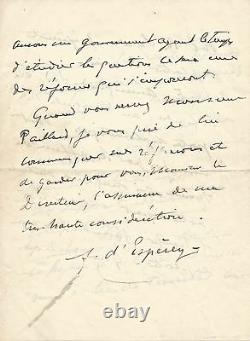 aurons un gouvernement ayant le temps
d'étudier la question
des réformes qui s'imposent
Quand vous verrez Monsieur
Paillard, je vous prie de lui
communiquer
de garder pour vous, Monsieur le
Directeur, l'assurance de ma
très haute considération.
f. d'Espèrey
ebay